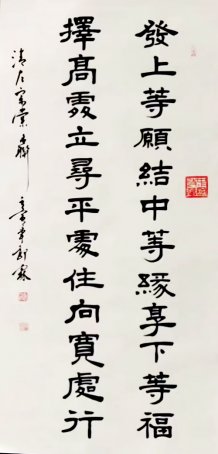 發上等願結中等緣享下等福
擇高處立尋平處住向寬處行
清左宗棠聯